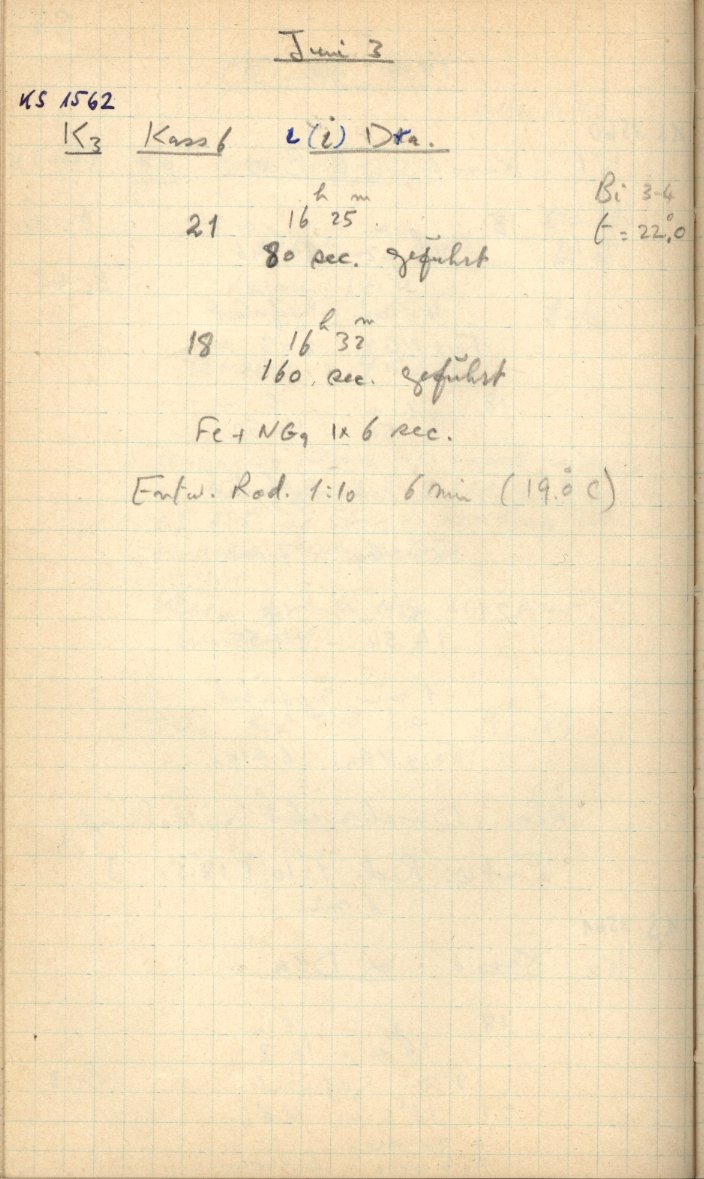 Juni 3
KS 1562
K3 Kass 6 ι (i) Dra.
Bi 3-4
21 16h 25m
t = 22°,0
80 sec. geführt
18 16h 32m
160. sec. geführt
Fe + NG9 1x 6 sec.
Entw. Rod. 1:10 6 min (19.°0 C)